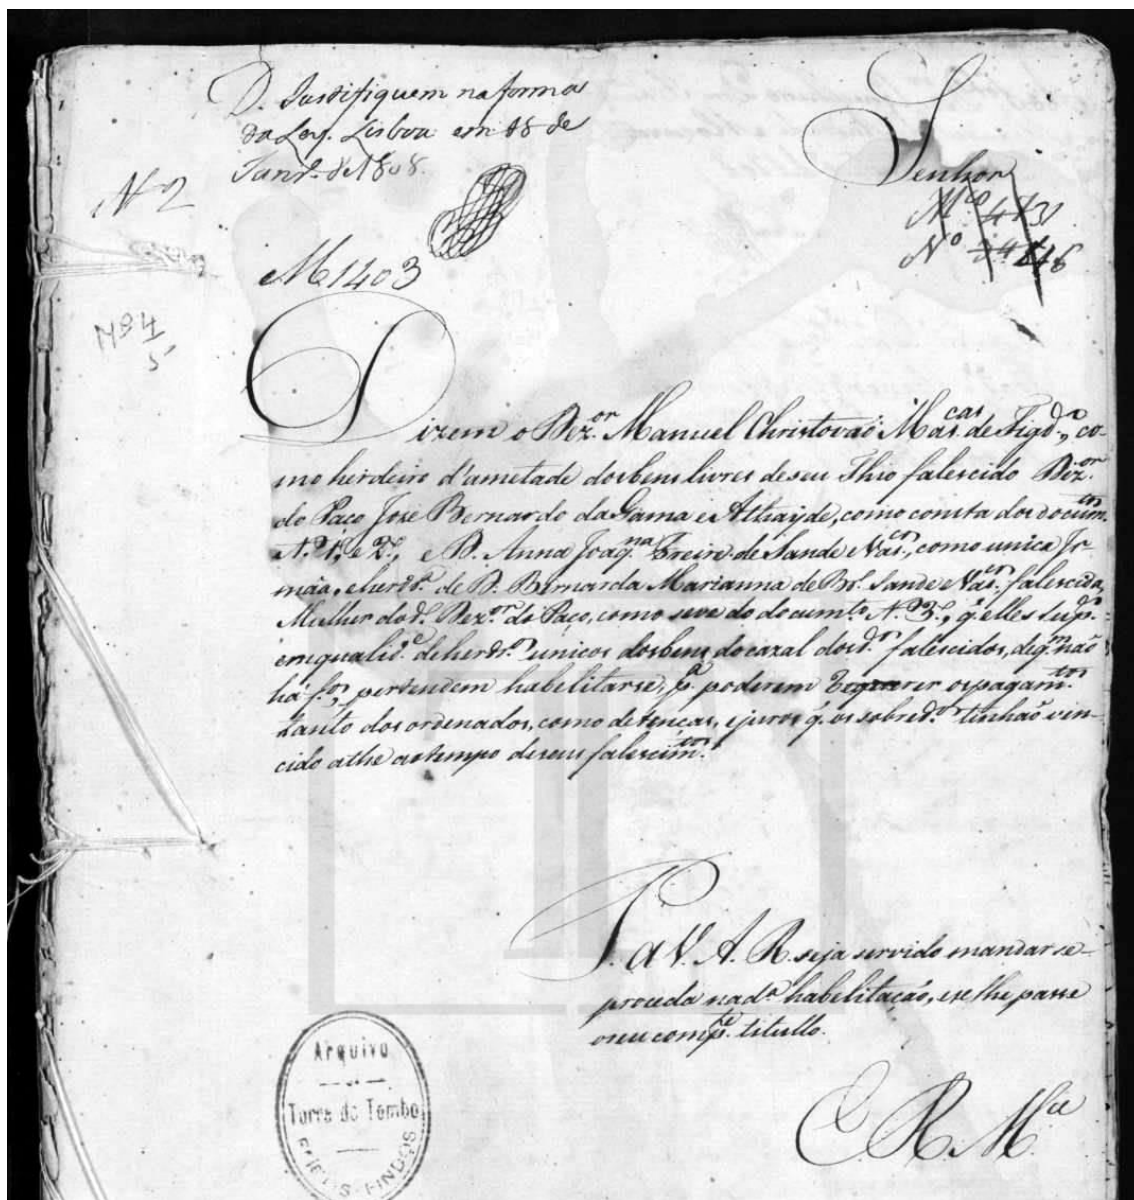 D. Justifiquem na forma
da Ley. Lisboa em 18 de
Janr.º de 1808.
Senhor
Nº 2
Mº 413
Nº
M 1403
Nº 4
5
Dizem o Dez.or Manuel Christovaõ Mas.cas de Figd.º, co-
mo herdeiro d'ametade dos bens livres de seu Thio falescido Dez.or
do Paço José Bernardo da Gama e Athayde, como consta dos docum.tos
N.º 1.º e 2.º, e D. Anna Joaq.na Freire de Sande Vas.cos, como unica Ir-
mãa, e herdr.ª de D. Bernarda Marianna de Br.º Sande Vas.cos, falescida,
Mulher do d.º Dez.or do Paço, como se ve do documt.º N.º 3.º, q̃ elles sup.es
em qualid.e de herdr.os unicos dos bens do cazal dos d.os falescidos, de q.m não
ha f.os, pertendem habilitarse, p.ª poderem requerer os pagam.tos
tanto dos ordenados, como de tenças, e juros q̃ os sobred.os tinhaõ ven-
cido athe ao tempo de seus falescim.tos
P. a V. A. R. seja servido mandar se
proceda na d.ª habilitação, e se lhe passe
o seu comp.e titullo.
E. R. M.ce
Arquivo
Torre do Tombo
FEITOS FINDOS